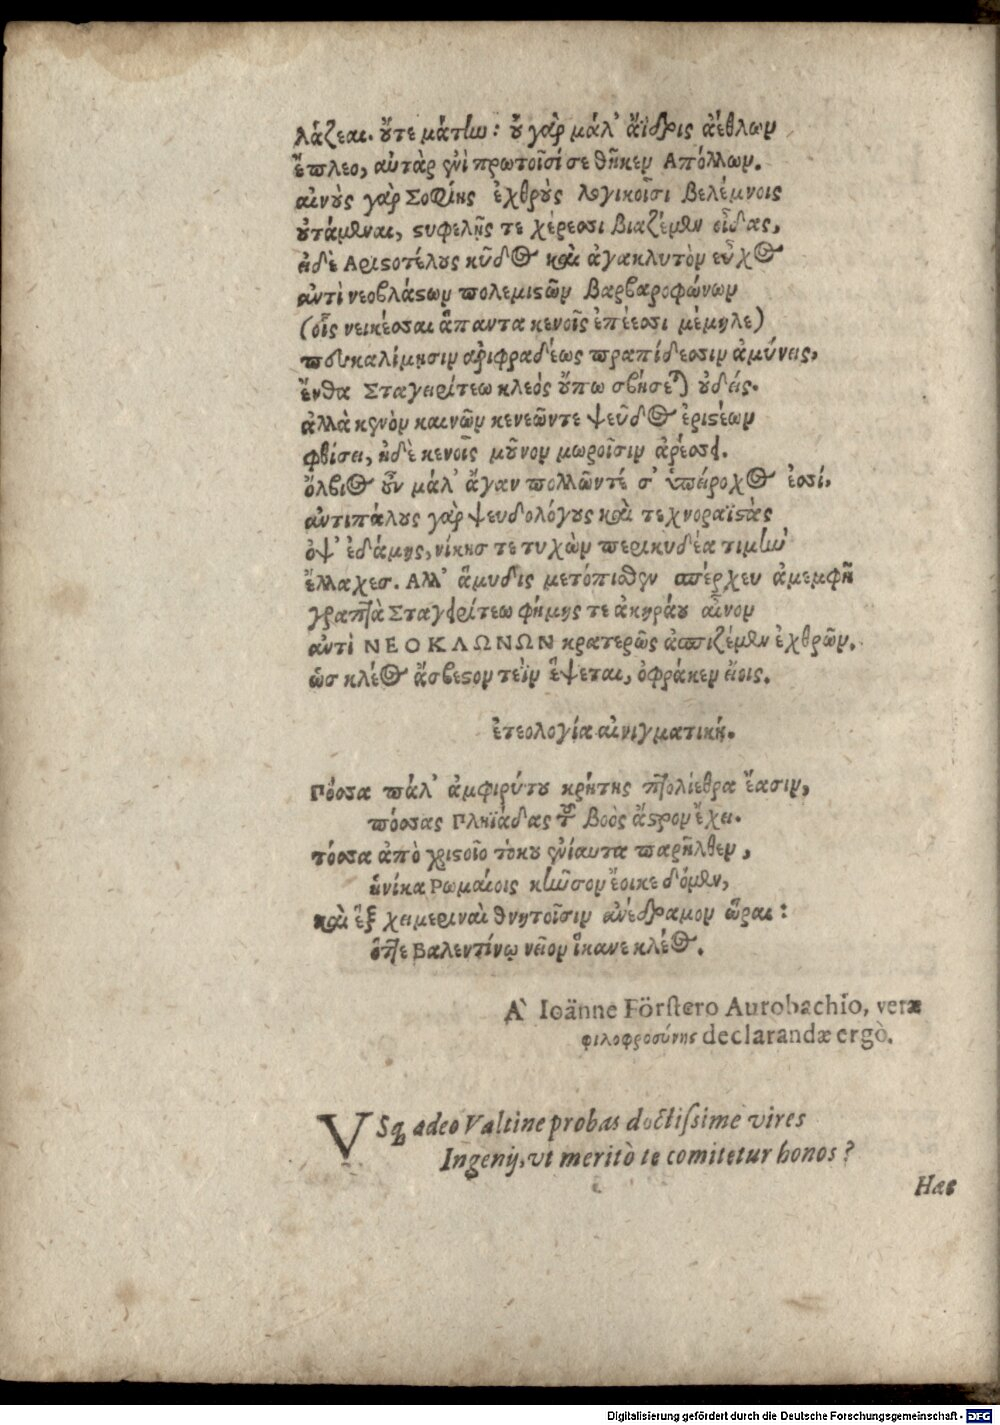 λάζεαι. ὔτε μάτην: ὐ γὰρ μάλ' ἄϊδρις ἀέθλων
ἔπλεο, αὐτὰρ ἐνὶ πρωτοῖσί σε θῆκεν Απόλλων.
αἰνὺς γὰρ Σοφίης ἐχθρὺς λογικοῖσι βελέμνοις
ὐτάμεναι, ςυφελῇς τε χέρεσσι βιαζέμεν οἶδας,
ἠδὲ Αριςοτέλυς κῦδος καὶ ἀγακλυτὸν εὖχος
ἀντὶ νεοβλάςων πολεμιςῶν βαρβαροφώνων
(οἷς νεικέσσαι ἅπαντα κενοῖς ἐπέεσσι μέμηλε)
πευκαλίμησιν ἀριφραδέως πραπίδεσσιν ἀμύνεις,
ἔνθα Σταγειρίτεω κλεὸς ὔπω σβήσεται ὐδείς.
ἀλλὰ κενὸν καινῶν κενεῶντε ψεῦδος ἐριςέων
φθίσει, ἠδὲ κενοῖς μῦνον μωροῖσιν ἀρέσσει.
ὄλβιος ὖν μάλ' ἄγαν πολλῶντέ σ' ὑπείροχος ἐσσί,
ἀντιπάλυς γὰρ ψευδολόγυς καὶ τεχνοραϊςὰς
ὀψ' ἐδάμης, νίκησ τε τυχὼν περικυδέα τιμὴν
ἔλλαχες. Αλλ' ἄμυδις μετόπισθεν σπέρχευ ἀμεμφῆ
γραπτὰ Σταγειρίτεω φήμης τε ἀκηράυ αἶνον
ἀντὶ ΝΕΟΚΛΩΝΩΝ κρατερῶς ἀσπιζέμεν ἐχθρῶν.
ὡσ κλέος ἄσβεςον τεῒν ἕψεται, ὀφράκεν εἴοις.
ἐτεολογία αἰνιγματική.
Πόσσα πάλ' ἀμφιρύτυ κρήτης πτολίεθρα ἔασιν,
πόσσας Πληϊάδας τ͂ βοὸς ἄςρον ἔχει.
τόσσα ἀπὸ χριςοῖο τόκυ ἐνίαυτα παρῆλθεν,
ἡνίκα Ρωμαίοις κῆνσον ἔοικε δόμεν,
καὶ ἓξ χειμεριναὶ θνητοῖσιν ἀνέδραμον ὧραι:
ὅττε Βαλεντίνῳ νεῖον ἵκανε κλέος.
A` Ioänne Förſtero Aurobachio, veræ
φιλοφροσύνης declarandæ ergò.
VSq́ adeo Valtine probas doctiſsimè vires
Ingenij, vt meritò te comitetur honos?
Hæc
Digitalisierung gefördert durch die Deutsche Forschungsgemeinschaft - DFG